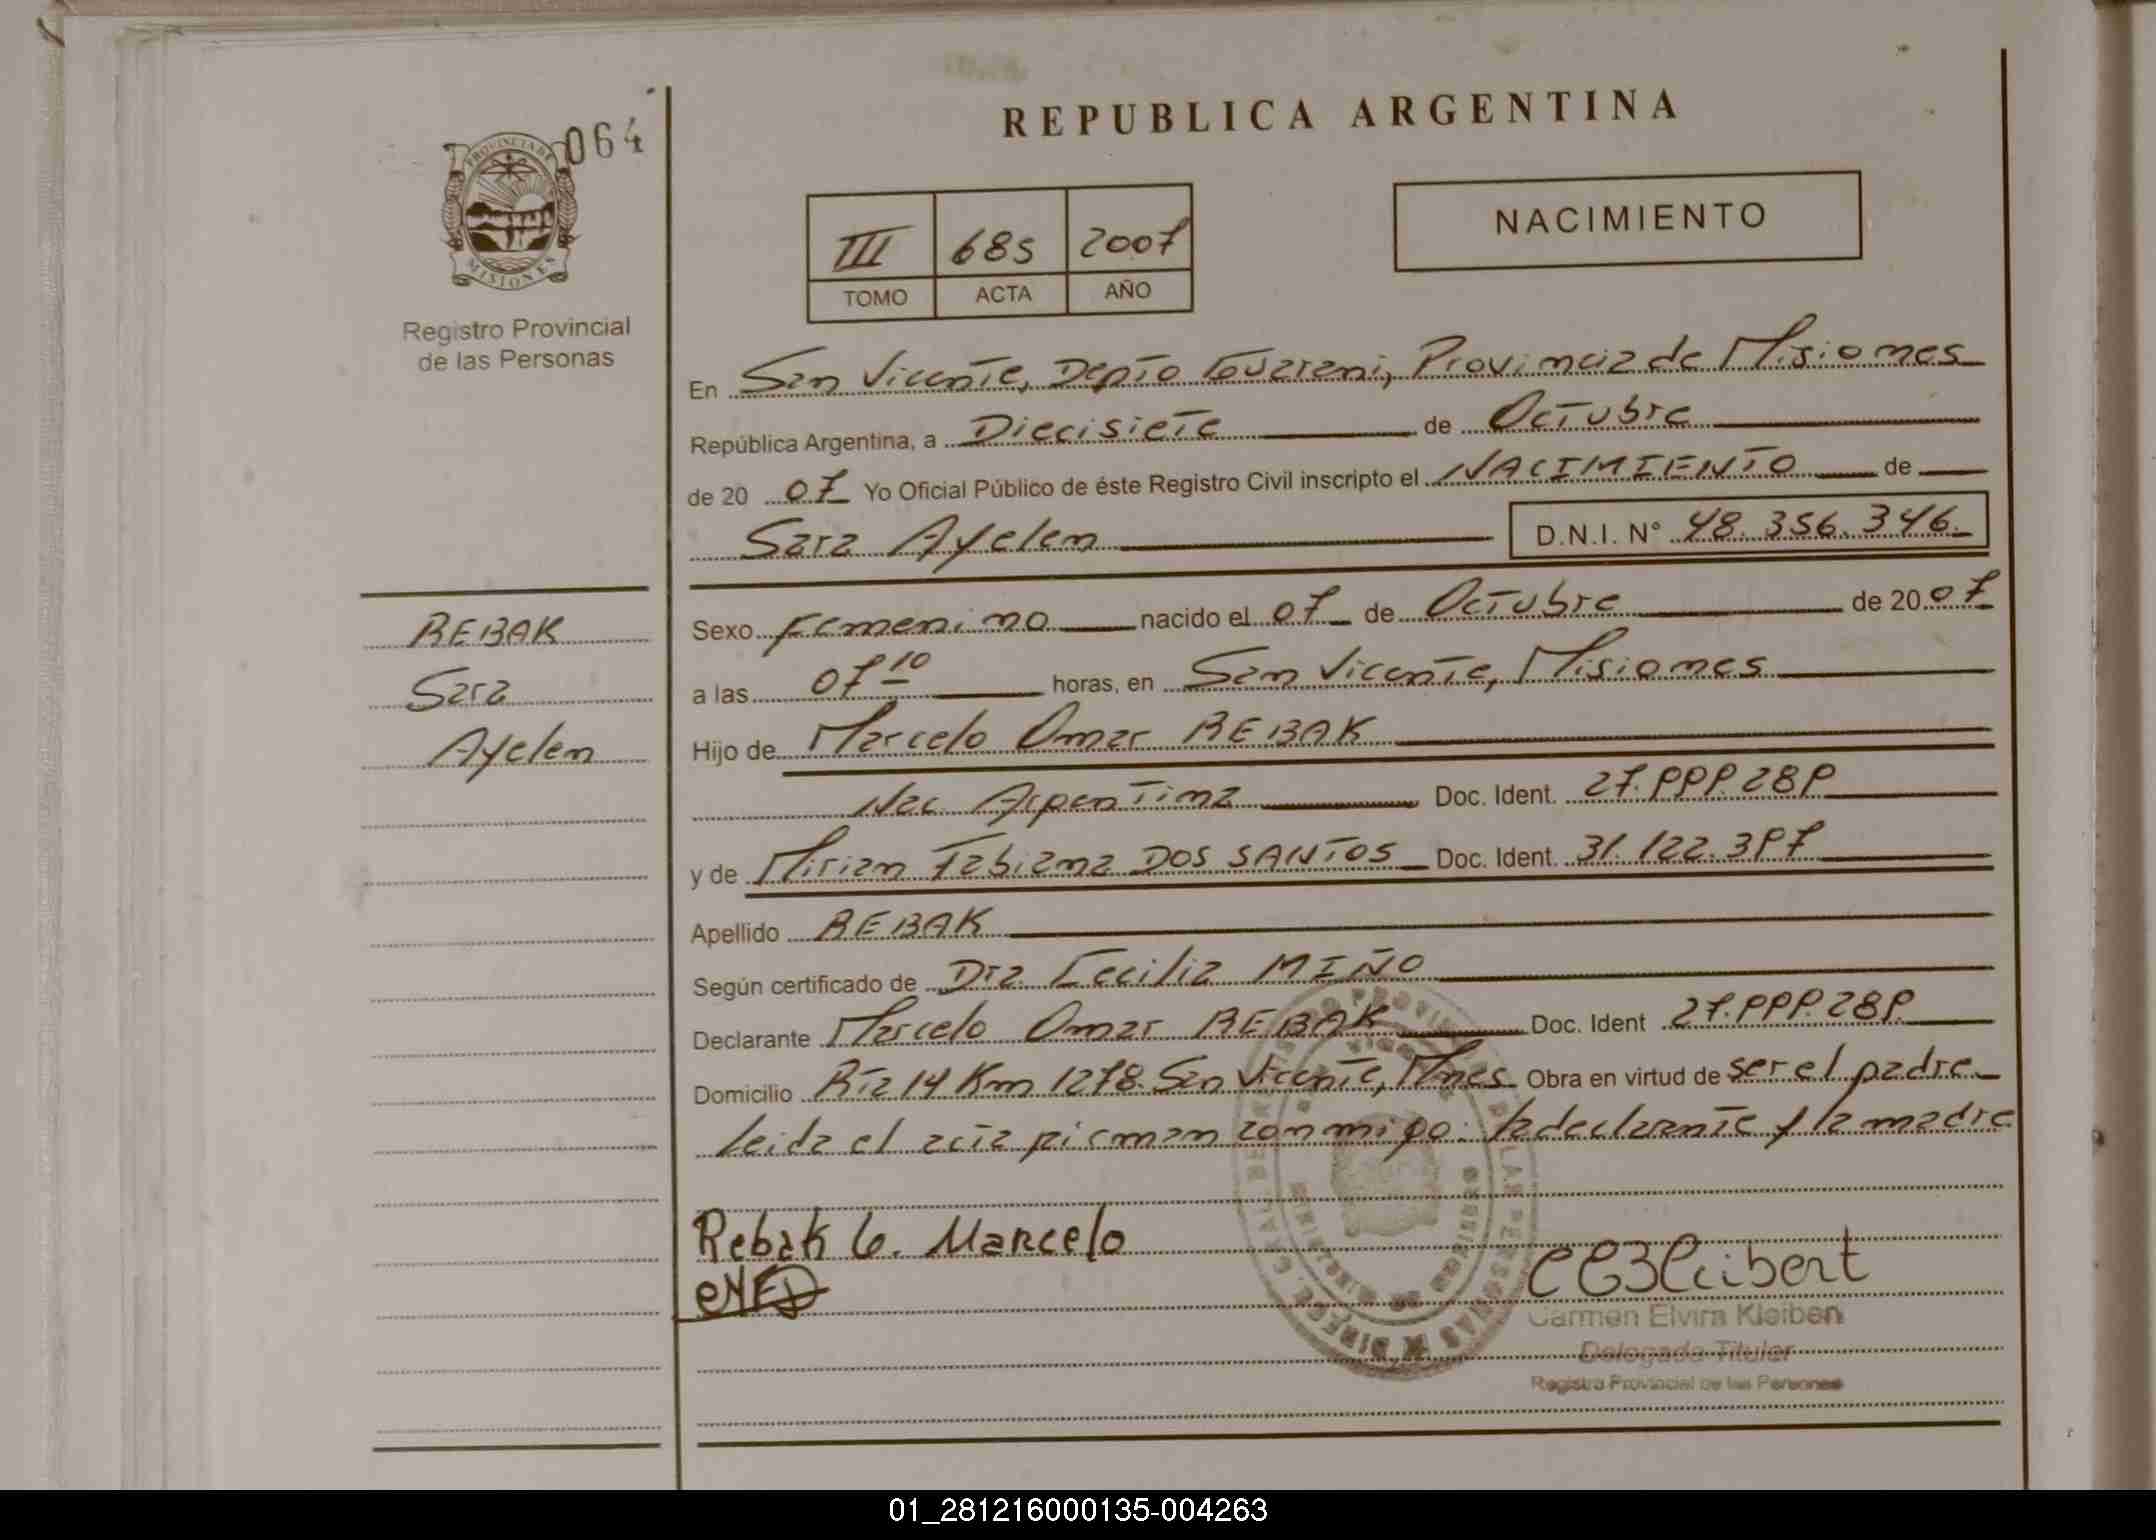 REPUBLICA ARGENTINA
064
PROVINCIA DE
MISIONES
Registro Provincial
de las Personas
NACIMIENTO
III 685 2007
TOMO ACTA AÑO
En San Vicente, Depto Guarani, Provincia de Misiones
República Argentina, a Diecisiete de Octubre
de 20 07 Yo Oficial Público de éste Registro Civil inscripto el NACIMIENTO de
Sara Ayelen D.N.I. N° 48.356.346.
REBAK
Sara
Ayelen
Sexo Femenino nacido el 07 de Octubre de 20 07
a las 07 10 horas, en San Vicente, Misiones
Hijo de Marcelo Omar REBAK
Nac. Argentina Doc. Ident. 27.999.289
y de Mirian Fabiana DOS SANTOS Doc. Ident. 31.122.397
Apellido REBAK
Según certificado de Dra Cecilia MIÑO
Declarante Marcelo Omar REBAK Doc. Ident 27.999.289
Domicilio Rta 14 Km 1278. San Vicente, Mnes Obra en virtud de ser el padre
Leida el acta firman conmigo: la declarante y la madre
Rebak O. Marcelo
Carmen Elvira Kleibert
Delegada Titular
Registro Provincial de las Personas
01_281216000135-004263